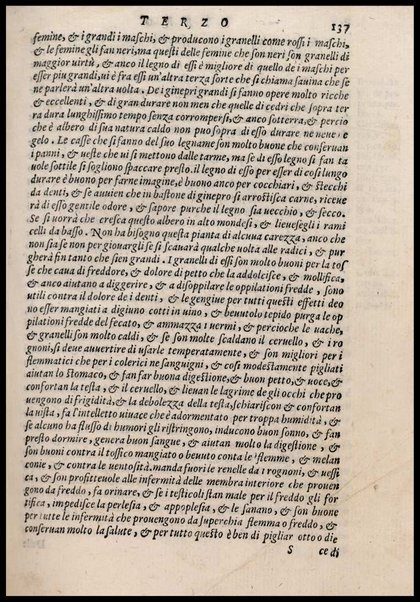 TERZO 137
femine, & i grandi i maschi, & producono i granelli come rossi i maschi,
& le femine gli fan neri, ma questi delle femine che son neri son granelli di
maggior uirtù, & anco il legno di essi è migliore di quello de i maschi per
esser piu grandi, ui è fra essi un'altra terza sorte che si chiama sauina che se
ne parlerà un'altra uolta. De i ginepri grandi si fanno opere molto ricche
& eccellenti, & di gran durare non men che quelle di cedri che sopra ter
ra dura lunghissimo tempo senza corrompersi, & anco sotterra, & percio
che è albero di sua natura caldo non può sopra di esso durare ne neue ne
gelo. Le casse che si fanno del suo legname son molto buone che conseruan
i panni, & ueste che ui si mettono dalle tarme, ma se di esso legno si fan ta
uole sottile si sogliono spaccare presto. il legno di esso per esser di cosi lungo
durare è buono per farne imagine, è buono anco per cocchiari, & stecchi
da denti, & se auuien che in bastone di ginepro si arrostisca carne, riceue
rà di esso gentile odore, & sapore purche il legno sia uecchio, & secco.
Se si uorrà che cresca questo albero in alto mondesi, & lieuesegli i rami
celli da basso. Non hà bisogno questa pianta di alcuna carezza, anco che
non sia se non per giouargli se si scauarà qualche uolta alle radici, & pur
gherà fin tanto che sien grandi. I granelli di essi son molto buoni per la tos
se che caua di freddore, & dolore di petto che la addolcisce, & mollifica,
& anco aiutano a diggerire, & a disoppilare le oppilationi fredde, sono
utili contra il dolore de i denti, & le gengiue per tutti questi effetti deo
no esser mangiati a digiuno cotti in uino, & beuutolo tepido purga le op
pilationi fredde del fecato, & ammazza i uermi, & percioche le uache,
& granelli son molto caldi, & se son molte scaldano il ceruello, & i ro
gnoni, si deue auuertire di usarle temperatamente, & son migliori per i
flemmatici che per i colerici ne sanguigni, & cosi modestamente pigliati
aiutan lo stomaco, & fan far buona digestione, & buon petto, & uoce, &
confortan la testa, & il ceruello, & lieuan le lagrime de gli occhi che pro
uengono di frigidità, & la debolezza della testa, schiariscon & confortan
la uista, fa l'intelletto uiuace che è adormentato per troppa humidità, &
se alcuno ha flusso di humori gli ristringono, inducono buon sonno, & fan
presto dormire, genera buon sangue, & aiutan molto la digestione, &
son buoni contra il tossico mangiato o beuuto contra le flemme, & melan
conie, & contra le uentosità. manda fuori le renelle da i rognoni, & uessi
ca, & son profitteuole alle infermità delle membra interiore che prouen
gono da freddo, fa orinare, & se i testicoli stan male per il freddo gli for
tifica, impedisce la perlesia, & appoplesia, & le sanano, & son buone
per tutte le infermità che prouengono da superchia flemma o freddo, &
conseruan molto la salute, & per tutto questo è ben di pigliar otto o die
S ce di